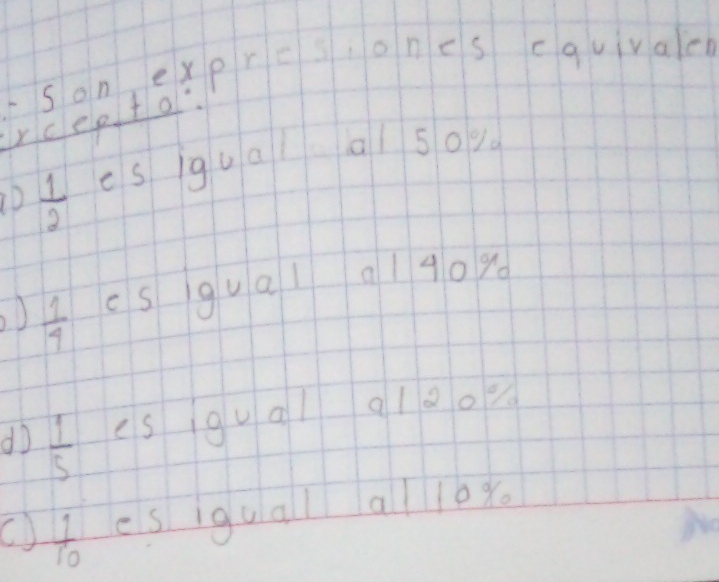 .- Son expresiones equivalen
excepto:
a) 1/2 es igual al 50%
b) 1/4 es igual al 40%
d) 1/5 es igual al 20%
c) 1/10 es igual al 10%